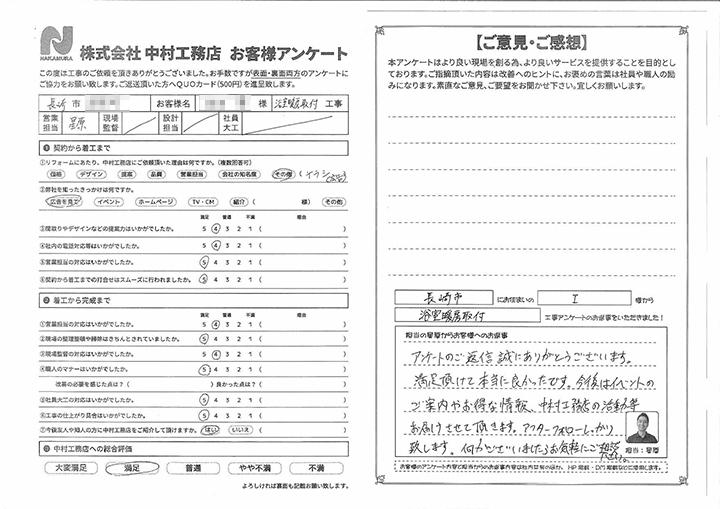 NAKAMURA
株式会社 中村工務店 お客様アンケート
この度は工事のご依頼を頂きありがとうございました。お手数ですが表面・裏面両方のアンケートに
ご協力をお願い致します。ご返送頂いた方へQUOカード(500円)を進呈致します。
長崎 市 お客様名 様 浴室暖房取付 工事
営業担当 星原 現場監督 設計担当 社員大工
❶ 契約から着工まで
①リフォームにあたり、中村工務店にご依頼頂いた理由は何ですか。(複数回答可)
価格 デザイン 提案 品質 営業担当 会社の知名度 その他 (チラシ
②弊社を知ったきっかけは何ですか。
広告を見て イベント ホームページ TV・CM 紹介 ( 様) その他
満足 普通 不満 理由
③間取りやデザインなどの提案力はいかがでしたか。 5 4 3 2 1 ( )
④社内の電話対応等はいかがでしたか。 5 4 3 2 1 ( )
⑤営業担当の対応はいかがでしたか。 5 4 3 2 1 ( )
⑥契約から着工までの打合せはスムーズに行われましたか。 5 4 3 2 1 ( )
❷ 着工から完成まで
満足 普通 不満 理由
①営業担当の対応はいかがでしたか。 5 4 3 2 1 ( )
②現場の整理整頓や掃除はきちんとされていましたか。 5 4 3 2 1 ( )
③現場監督の対応はいかがでしたか。 5 4 3 2 1 ( )
④職人のマナーはいかがでしたか。 5 4 3 2 1 ( )
改善の必要を感じた点は?( ) 良かった点は?( )
⑤社員大工の対応はいかがでしたか。 5 4 3 2 1 ( )
⑥工事の仕上がり具合はいかがでしたか。 5 4 3 2 1 ( )
⑦今後友人や知人の方に中村工務店をご紹介して頂けますか。 はい いいえ ( )
❸ 中村工務店への総合評価
大変満足 満足 普通 やや不満 不満
よろしければ裏面も記載お願い致します。
【ご意見・ご感想】
本アンケートはより良い現場を創る為、より良いサービスを提供することを目的と
しております。ご指摘頂いた内容は改善へのヒントに、お褒めの言葉は社員や職人の励
みになります。素直なご意見、ご要望をお聞かせ下さい。宜しくお願いします。
長崎市 にお住まいの I 様から
浴室暖房取付 工事アンケートのお返事をいただきました!
担当の星原からお客様へのお返事
アンケートのご返信誠にありがとうございます。
満足頂けて本当に良かったです。今後はイベントの
ご案内やお得な情報、中村工務店の活動等
お届けさせて頂きます。アフターフォローしっかり
致します。何かございましたらお気軽にご相談
ください。
担当:星原
お客様のアンケート内容と担当からのお返事内容は社内共有のほか、HP掲載・DM掲載などに使用します。